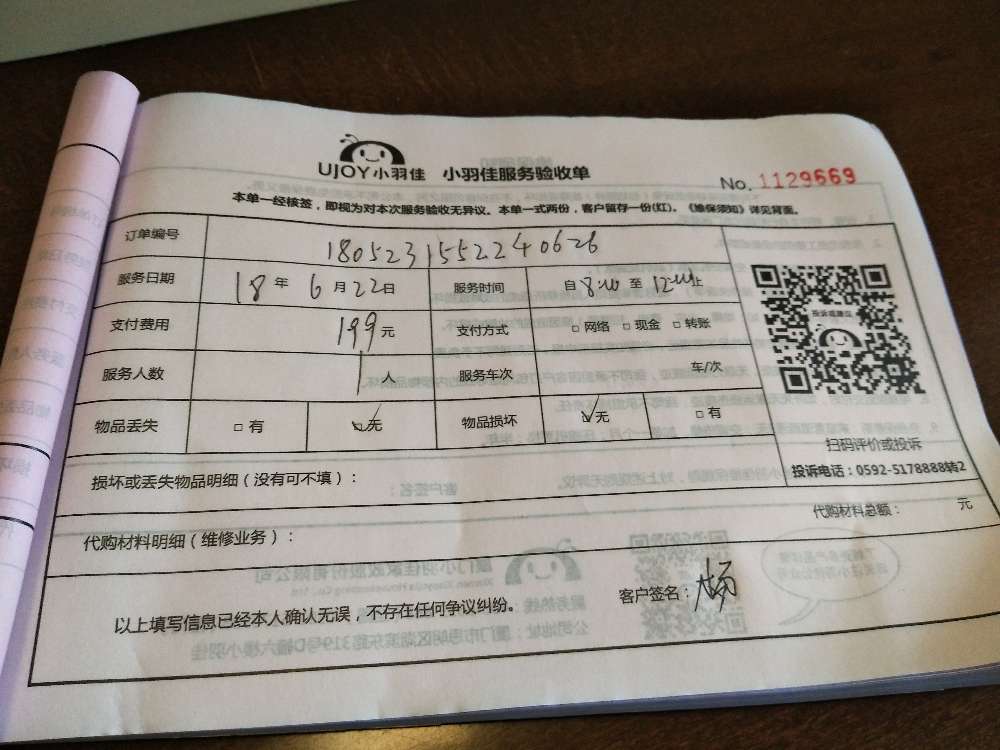 UJOY小羽佳 小羽佳服务验收单
No. 1129669
本单一经核签，即视为对本次服务验收无异议。本单一式两份，客户留存一份(红)。《维保须知》详见背面。
订单编号 1805231552240626
服务日期 18年 6月22日 服务时间 自8:00至12:00止
支付费用 199元 支付方式 □网络 □现金 □转账
服务人数 1人 服务车次 车/次
物品丢失 □有 ☑无 物品损坏 ☑无 □有
投诉或建议
扫码评价或投诉
投诉电话：0592-5178888转2
损坏或丢失物品明细（没有可不填）：
代购材料明细（维修业务）： 代购材料总额： 元
以上填写信息已经本人确认无误，不存在任何争议纠纷。 客户签名：